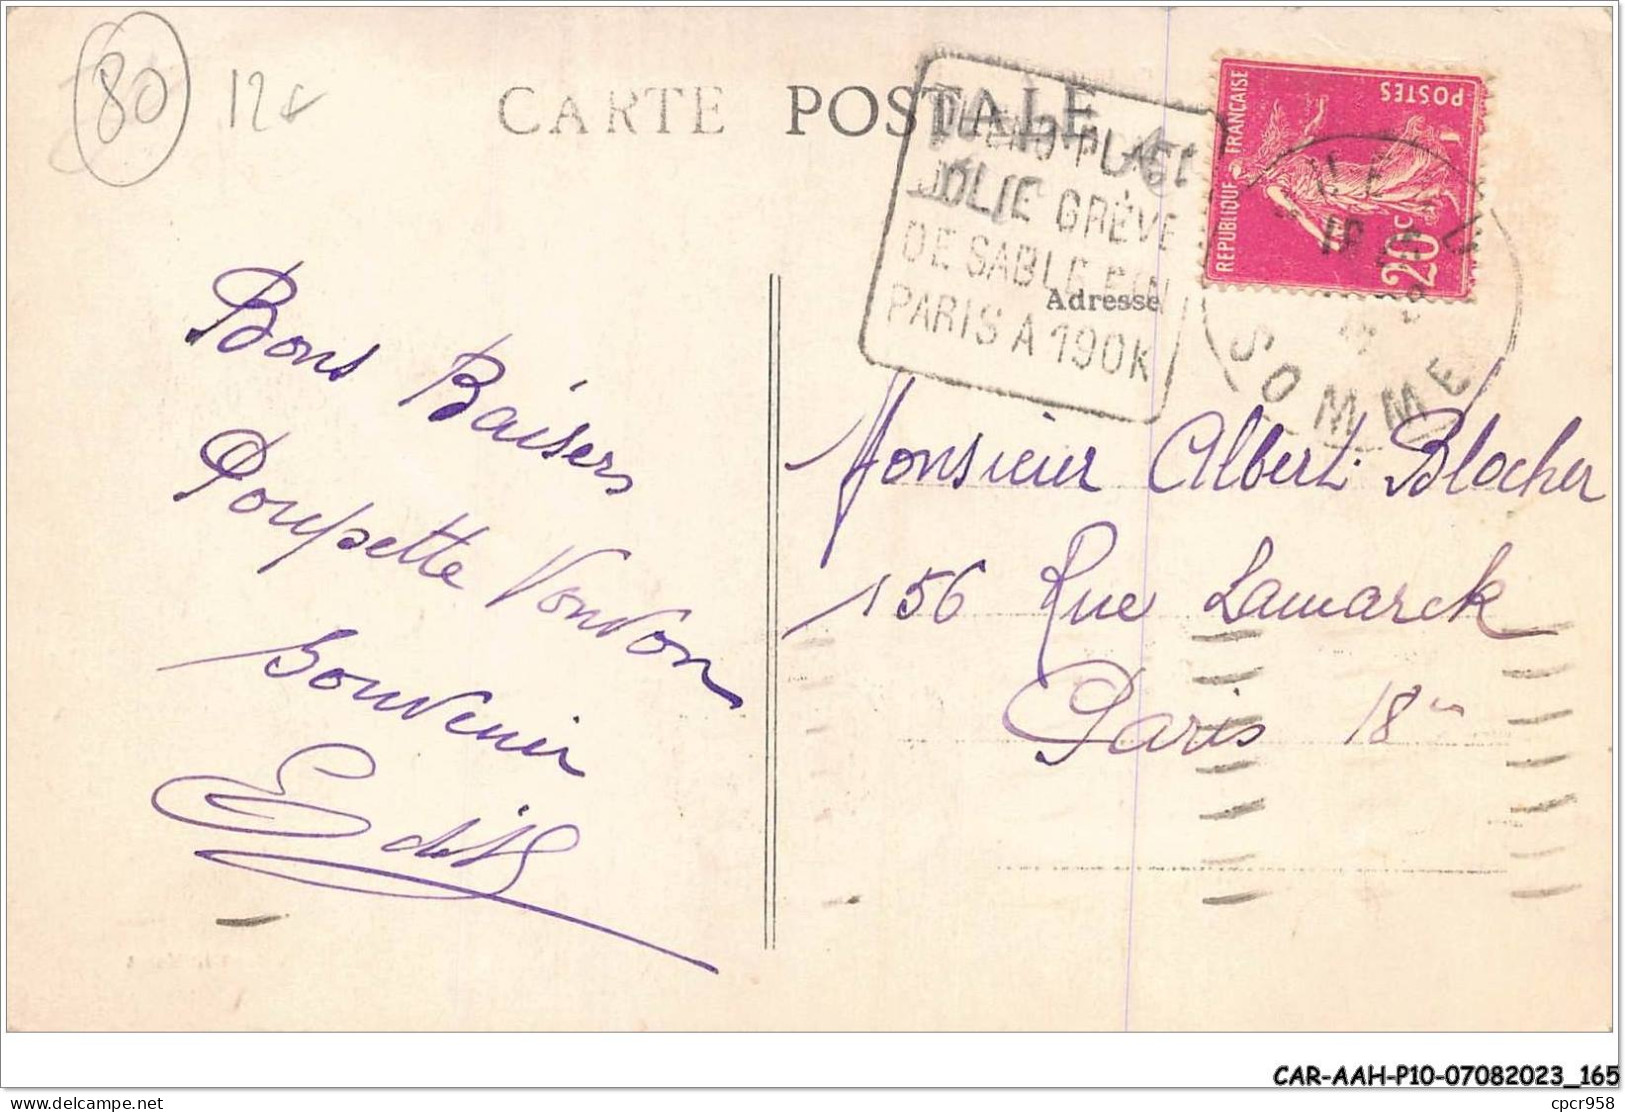 80
12€
CARTE POSTALE
JOLIE GRÈVE
DE SABLE FIN
PARIS A 190K
REPUBLIQUE FRANÇAISE
POSTES
20c
SOMME
Adresse
Bons Baisers
Poupette Vonvon
Souvenir
Edith
Monsieur Albert Blocher
156 Rue Lamarck
Paris 18
CAR-AAH-P10-07082023_165
delcampe.net
cpcr958